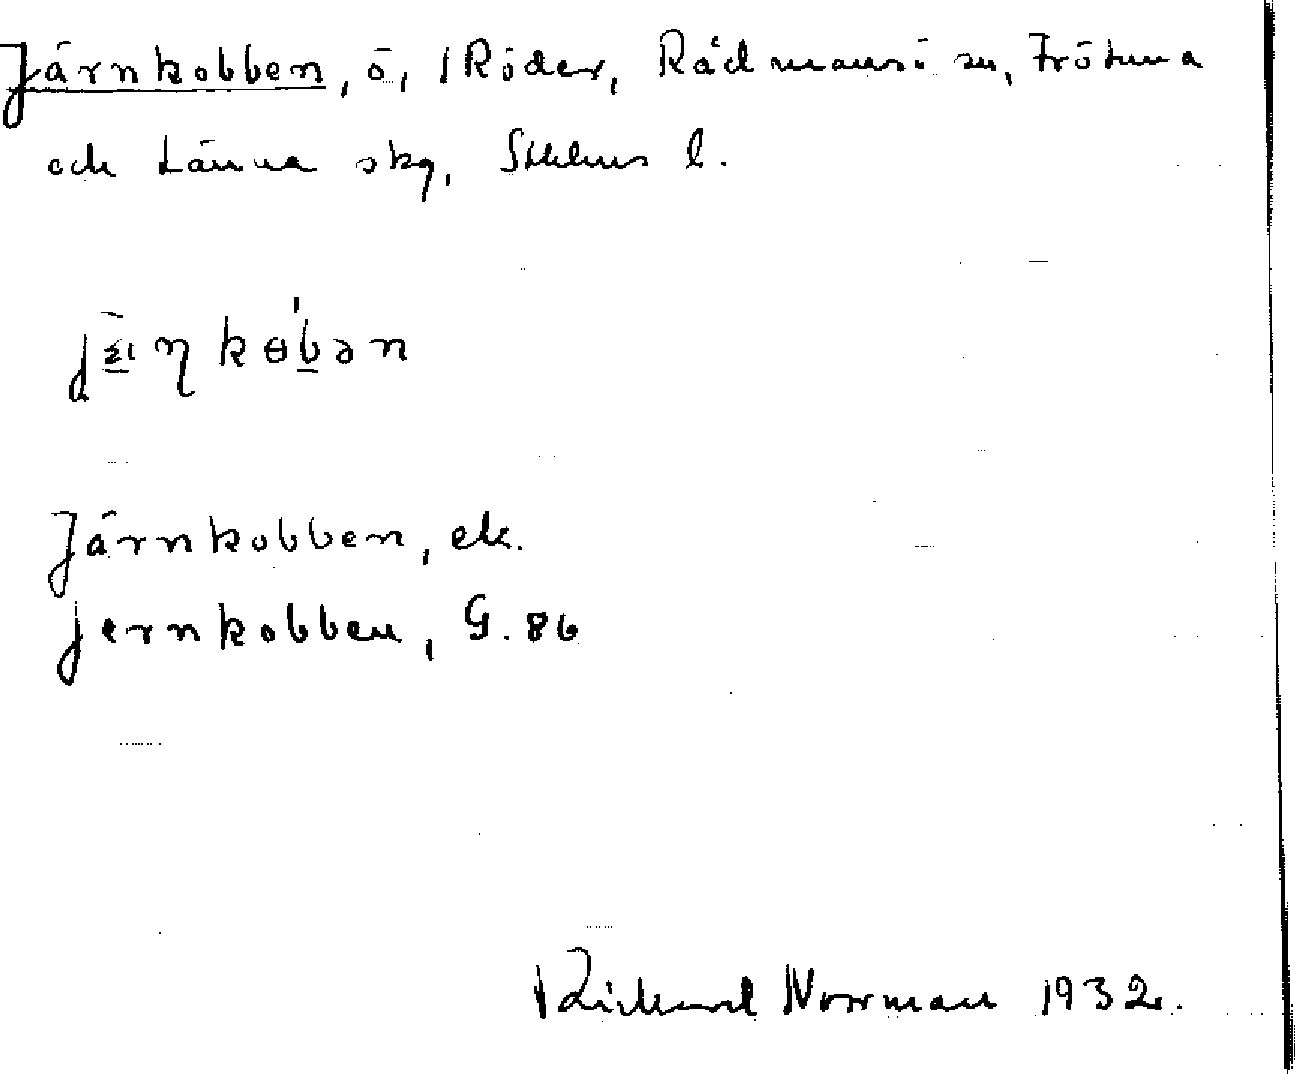 Järnkobben, ö, Röder, Rådmansö sn, Frötuna
och Länna skg, Sthlms l.
Järnkobben, ek.
Jernkobben, G. 86
Rickard Norrman 1932.